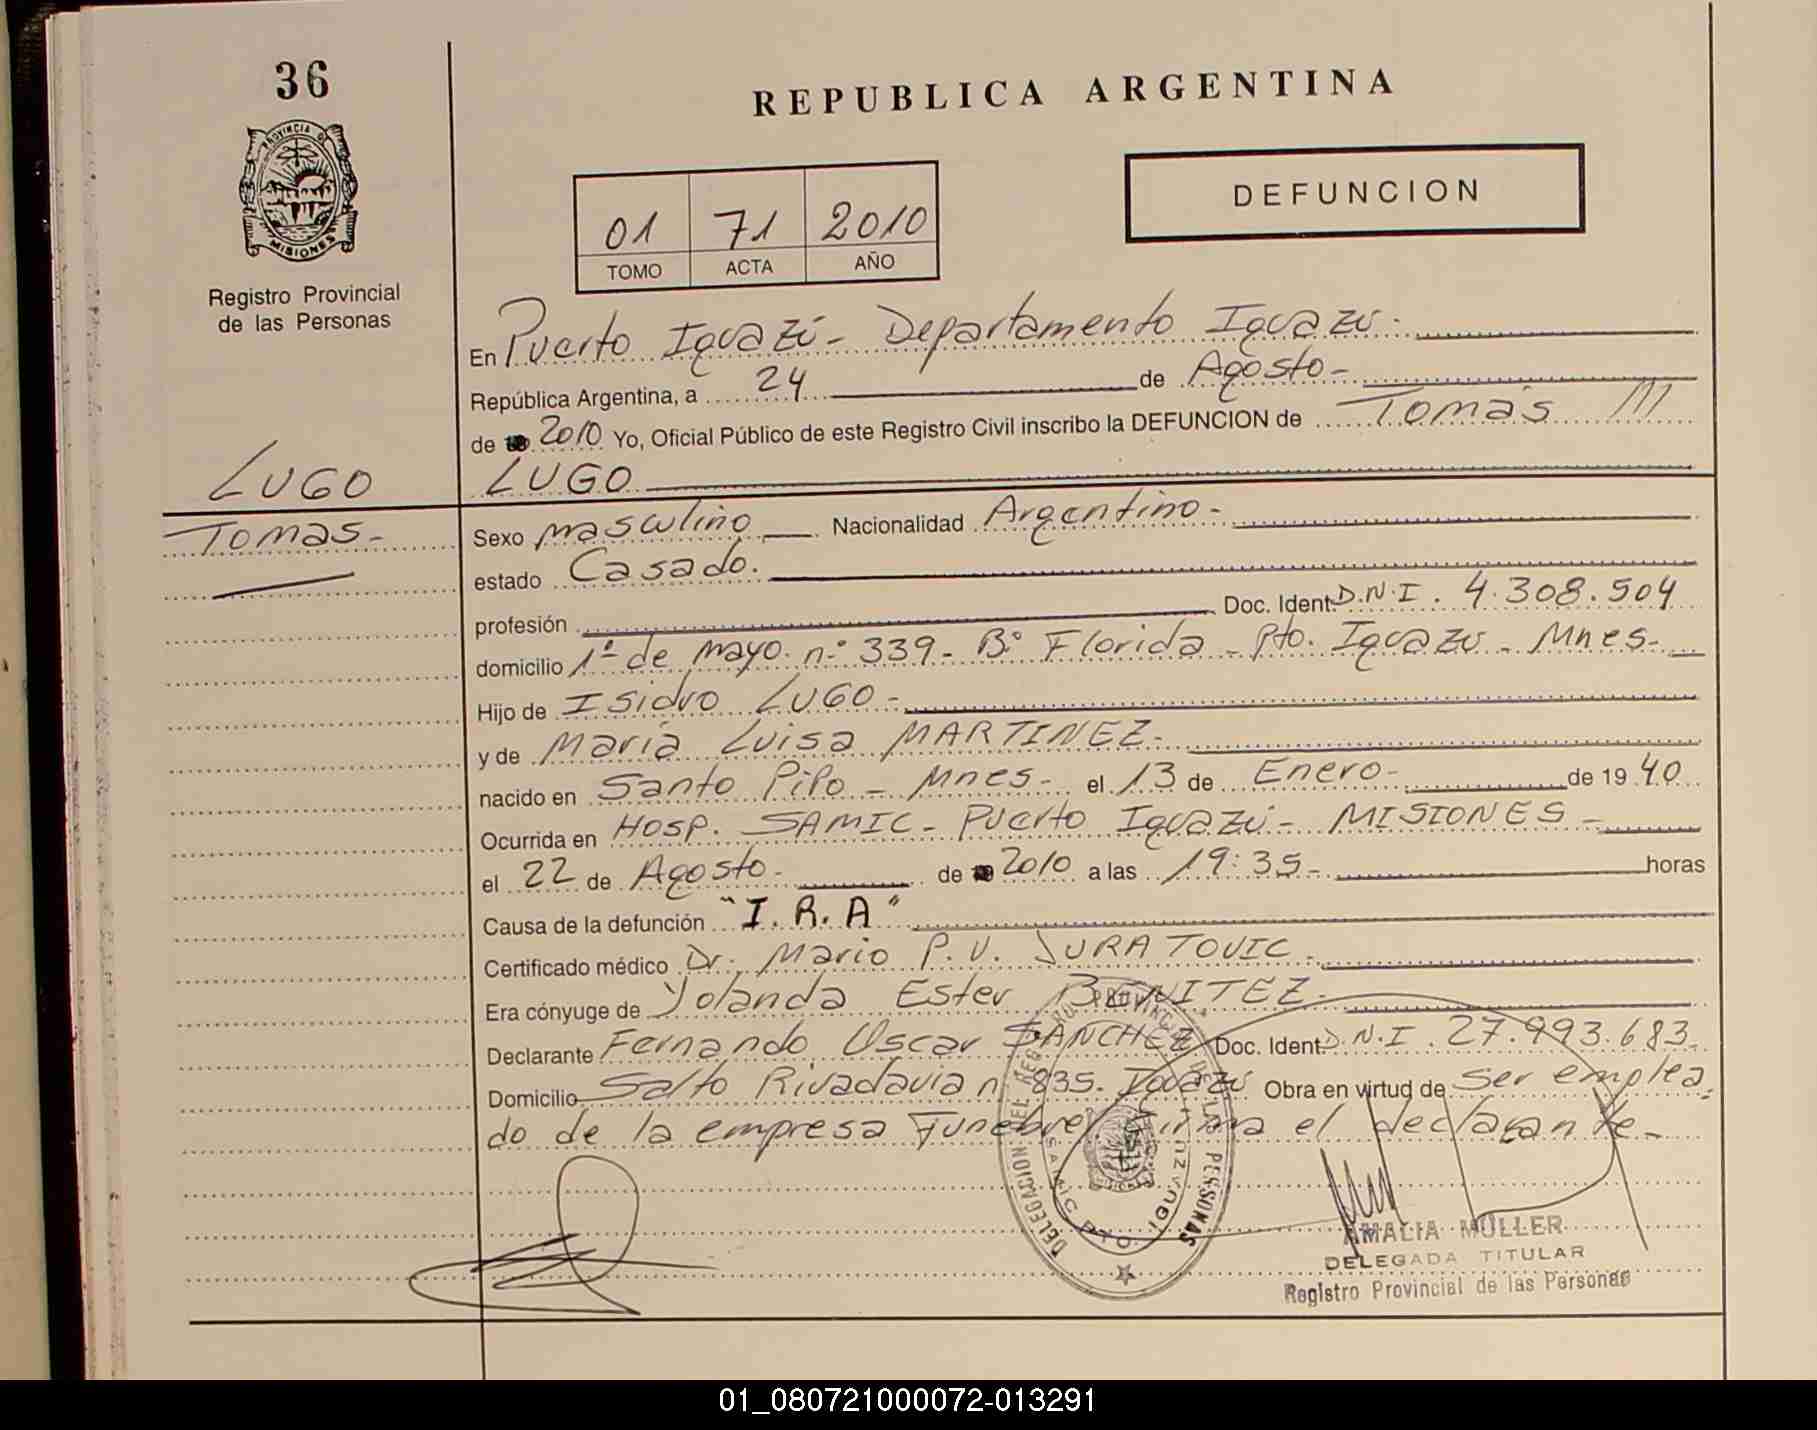 36
REPUBLICA ARGENTINA
PROVINCIA DE
MISIONES
Registro Provincial
de las Personas
01 71 2010
TOMO ACTA AÑO
DEFUNCION
En Puerto Iguazú - Departamento Iguazú.
República Argentina, a 24 de Agosto-
de 2010 Yo, Oficial Público de este Registro Civil inscribo la DEFUNCION de Tomás
LUGO
LUGO
Tomas-
Sexo masculino Nacionalidad Argentino-
estado Casado.
profesión Doc. Ident. D.N.I. 4.308.504
domicilio 1º de mayo. nº 339- Bº Florida - Pto. Iguazú - Mnes-
Hijo de Isidro LUGO-
y de María Luisa MARTINEZ-
nacido en Santo Pipo - Mnes- el 13 de Enero- de 1940
Ocurrida en Hosp. SAMIC- Puerto Iguazú- MISIONES-
el 22 de Agosto- de 2010 a las 19:35- horas
Causa de la defunción "I.R.A"
Certificado médico Dr. Mario P.V. JURATOVIC-
Era cónyuge de Yolanda Ester BENITEZ-
Declarante Fernando Oscar SANCHEZ Doc. Ident. D.N.I. 27.993.683-
Domicilio Salto Rivadavia nº 835. Iguazú Obra en virtud de ser emplea
do de la empresa Funebre firma el declarante-
DELEGACION DEL REGISTRO PROVINCIAL DE LAS PERSONAS
SAMIC PTO. IGUAZU
AMALIA MULLER
DELEGADA TITULAR
Registro Provincial de las Personas
01_080721000072-013291